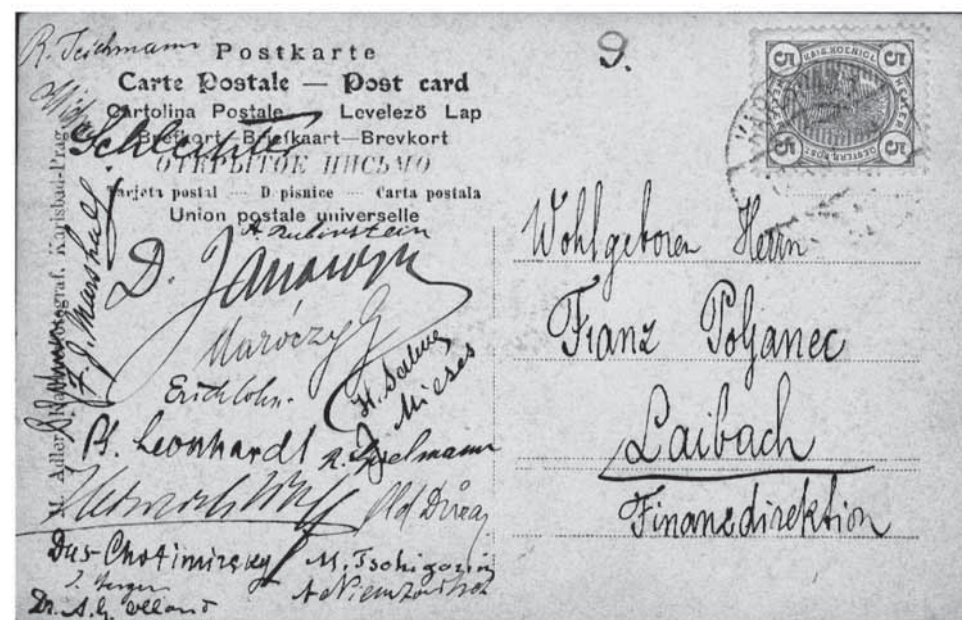 R. Teichmann
Postkarte
Carte Postale — Post card
Cartolina Postale — Levelező Lap
Brefkort—Briefkaart—Brevkort
ОТКРЫТОЕ ПИСЬМО
Tarjeta postal — D pisnice — Carta postala
Union postale universelle
Schlechter
F. J. Marshall
A. Rubinstein
D. Janowski
Maróczy G
Erich Cohn.
H. Salwe
Mieses
P. Leonhardt
R. Spielmann
Old Důras
Dus-Chotimirsky
M. Tschigorin
J. Berger
A Niemzowitsch
Dr. A.G. Olland
M. Adler, Karlsbad-Prag
9.
5 KAIS. KOENIGL. 5
HELLER HELLER
5 OESTERR. POST. 5
Wohlgeboren Herrn
Franz Poljanec
Laibach
Finanzdirektion